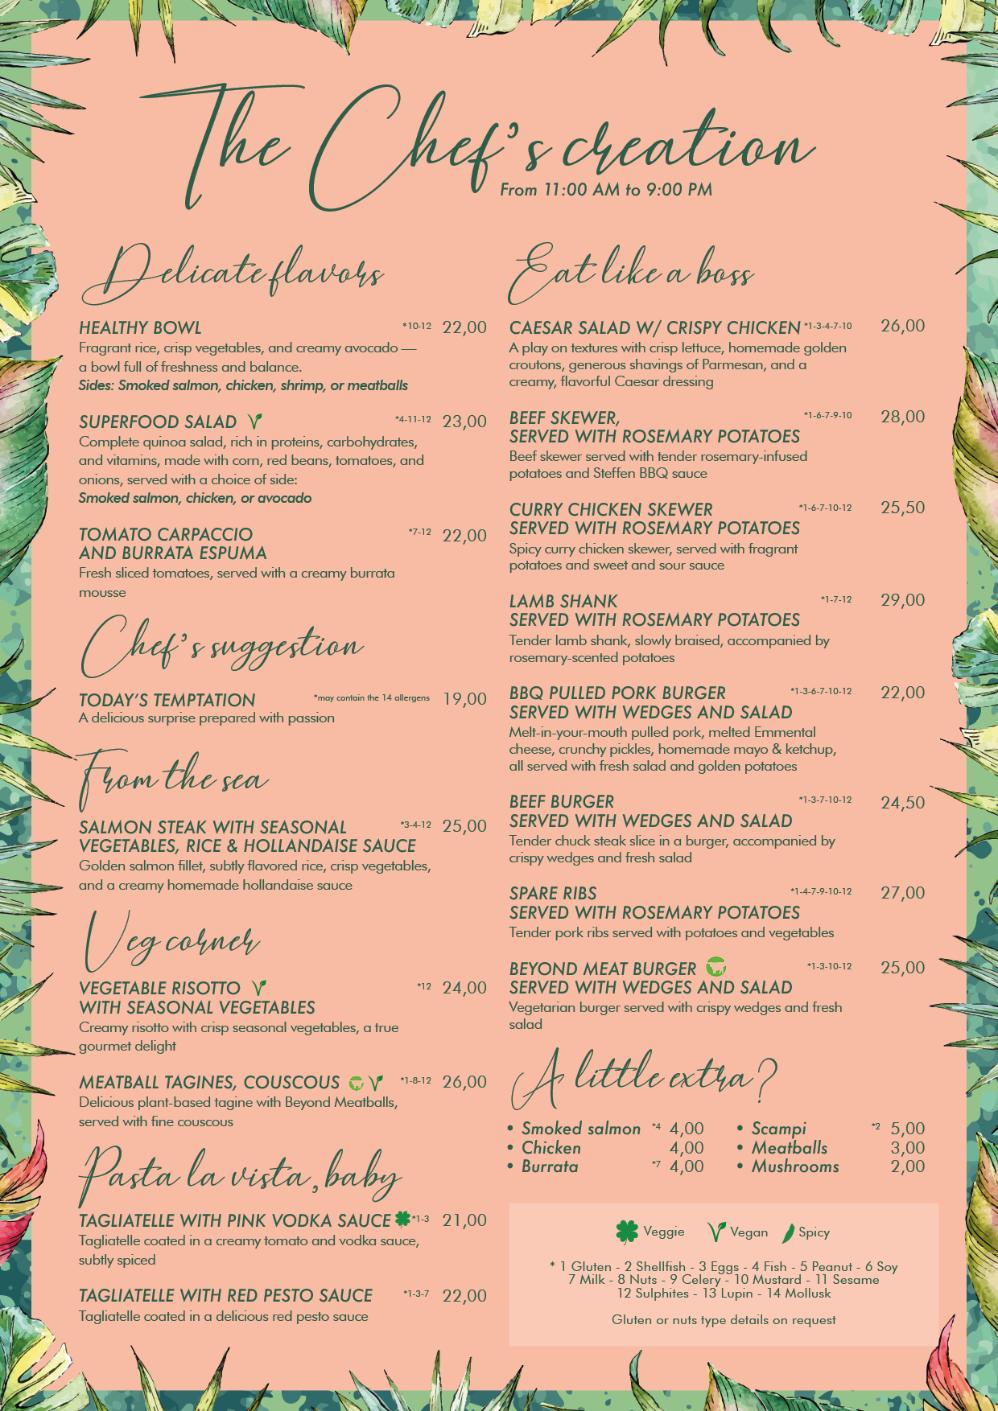 The Chef's creation
From 11:00 AM to 9:00 PM
Delicate flavors
HEALTHY BOWL *10-12 22,00
Fragrant rice, crisp vegetables, and creamy avocado —
a bowl full of freshness and balance.
Sides: Smoked salmon, chicken, shrimp, or meatballs
SUPERFOOD SALAD *4-11-12 23,00
Complete quinoa salad, rich in proteins, carbohydrates,
and vitamins, made with corn, red beans, tomatoes, and
onions, served with a choice of side:
Smoked salmon, chicken, or avocado
TOMATO CARPACCIO *7-12 22,00
AND BURRATA ESPUMA
Fresh sliced tomatoes, served with a creamy burrata
mousse
Chef's suggestion
TODAY'S TEMPTATION *may contain the 14 allergens 19,00
A delicious surprise prepared with passion
From the sea
SALMON STEAK WITH SEASONAL *3-4-12 25,00
VEGETABLES, RICE & HOLLANDAISE SAUCE
Golden salmon fillet, subtly flavored rice, crisp vegetables,
and a creamy homemade hollandaise sauce
Veg corner
VEGETABLE RISOTTO *12 24,00
WITH SEASONAL VEGETABLES
Creamy risotto with crisp seasonal vegetables, a true
gourmet delight
MEATBALL TAGINES, COUSCOUS *1-8-12 26,00
Delicious plant-based tagine with Beyond Meatballs,
served with fine couscous
Pasta la vista, baby
TAGLIATELLE WITH PINK VODKA SAUCE *1-3 21,00
Tagliatelle coated in a creamy tomato and vodka sauce,
subtly spiced
TAGLIATELLE WITH RED PESTO SAUCE *1-3-7 22,00
Tagliatelle coated in a delicious red pesto sauce
Eat like a boss
CAESAR SALAD W/ CRISPY CHICKEN *1-3-4-7-10 26,00
A play on textures with crisp lettuce, homemade golden
croutons, generous shavings of Parmesan, and a
creamy, flavorful Caesar dressing
BEEF SKEWER, *1-6-7-9-10 28,00
SERVED WITH ROSEMARY POTATOES
Beef skewer served with tender rosemary-infused
potatoes and Steffen BBQ sauce
CURRY CHICKEN SKEWER *1-6-7-10-12 25,50
SERVED WITH ROSEMARY POTATOES
Spicy curry chicken skewer, served with fragrant
potatoes and sweet and sour sauce
LAMB SHANK *1-7-12 29,00
SERVED WITH ROSEMARY POTATOES
Tender lamb shank, slowly braised, accompanied by
rosemary-scented potatoes
BBQ PULLED PORK BURGER *1-3-6-7-10-12 22,00
SERVED WITH WEDGES AND SALAD
Melt-in-your-mouth pulled pork, melted Emmental
cheese, crunchy pickles, homemade mayo & ketchup,
all served with fresh salad and golden potatoes
BEEF BURGER *1-3-7-10-12 24,50
SERVED WITH WEDGES AND SALAD
Tender chuck steak slice in a burger, accompanied by
crispy wedges and fresh salad
SPARE RIBS *1-4-7-9-10-12 27,00
SERVED WITH ROSEMARY POTATOES
Tender pork ribs served with potatoes and vegetables
BEYOND MEAT BURGER *1-3-10-12 25,00
SERVED WITH WEDGES AND SALAD
Vegetarian burger served with crispy wedges and fresh
salad
A little extra?
• Smoked salmon *4 4,00 • Scampi *2 5,00
• Chicken 4,00 • Meatballs 3,00
• Burrata *7 4,00 • Mushrooms 2,00
Veggie Vegan Spicy
* 1 Gluten - 2 Shellfish - 3 Eggs - 4 Fish - 5 Peanut - 6 Soy
7 Milk - 8 Nuts - 9 Celery - 10 Mustard - 11 Sesame
12 Sulphites - 13 Lupin - 14 Mollusk
Gluten or nuts type details on request